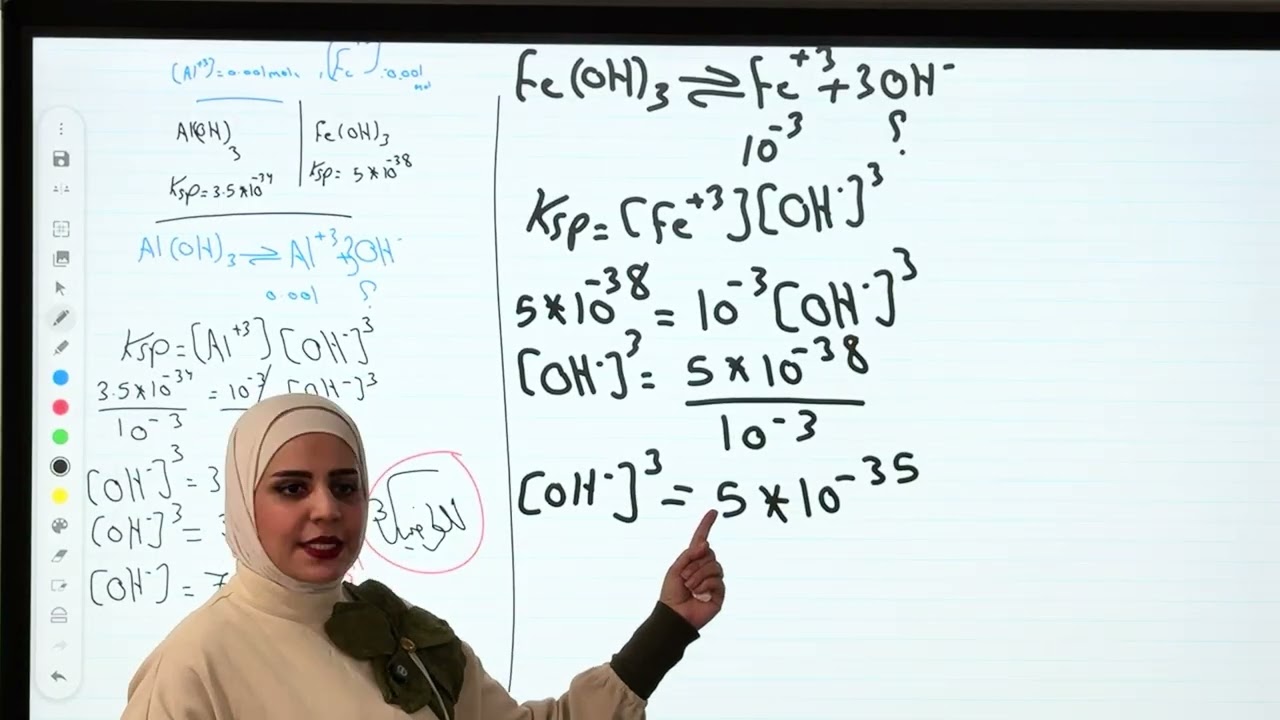 [Al⁺³]=0.001 mole , [Fe ] 0.001 mol
Al(OH)₃
Ksp=3.5*10⁻³⁴
Fe(OH)₃
Ksp= 5*10⁻³⁸
Al(OH)₃ ⇌ Al⁺³+3OH⁻
0.001 ?
Ksp=[Al⁺³][OH⁻]³
3.5*10⁻³⁴ = 10⁻³ [OH⁻]³
10⁻³
[OH⁻]³ = 3
[OH⁻]³ =
[OH⁻] = 7
Fe(OH)₃ ⇌ Fe⁺³+3OH⁻
10⁻³ ?
Ksp=[Fe⁺³][OH⁻]³
5*10⁻³⁸ = 10⁻³[OH⁻]³
[OH⁻]³ = 5*10⁻³⁸
10⁻³
[OH⁻]³ = 5*10⁻³⁵